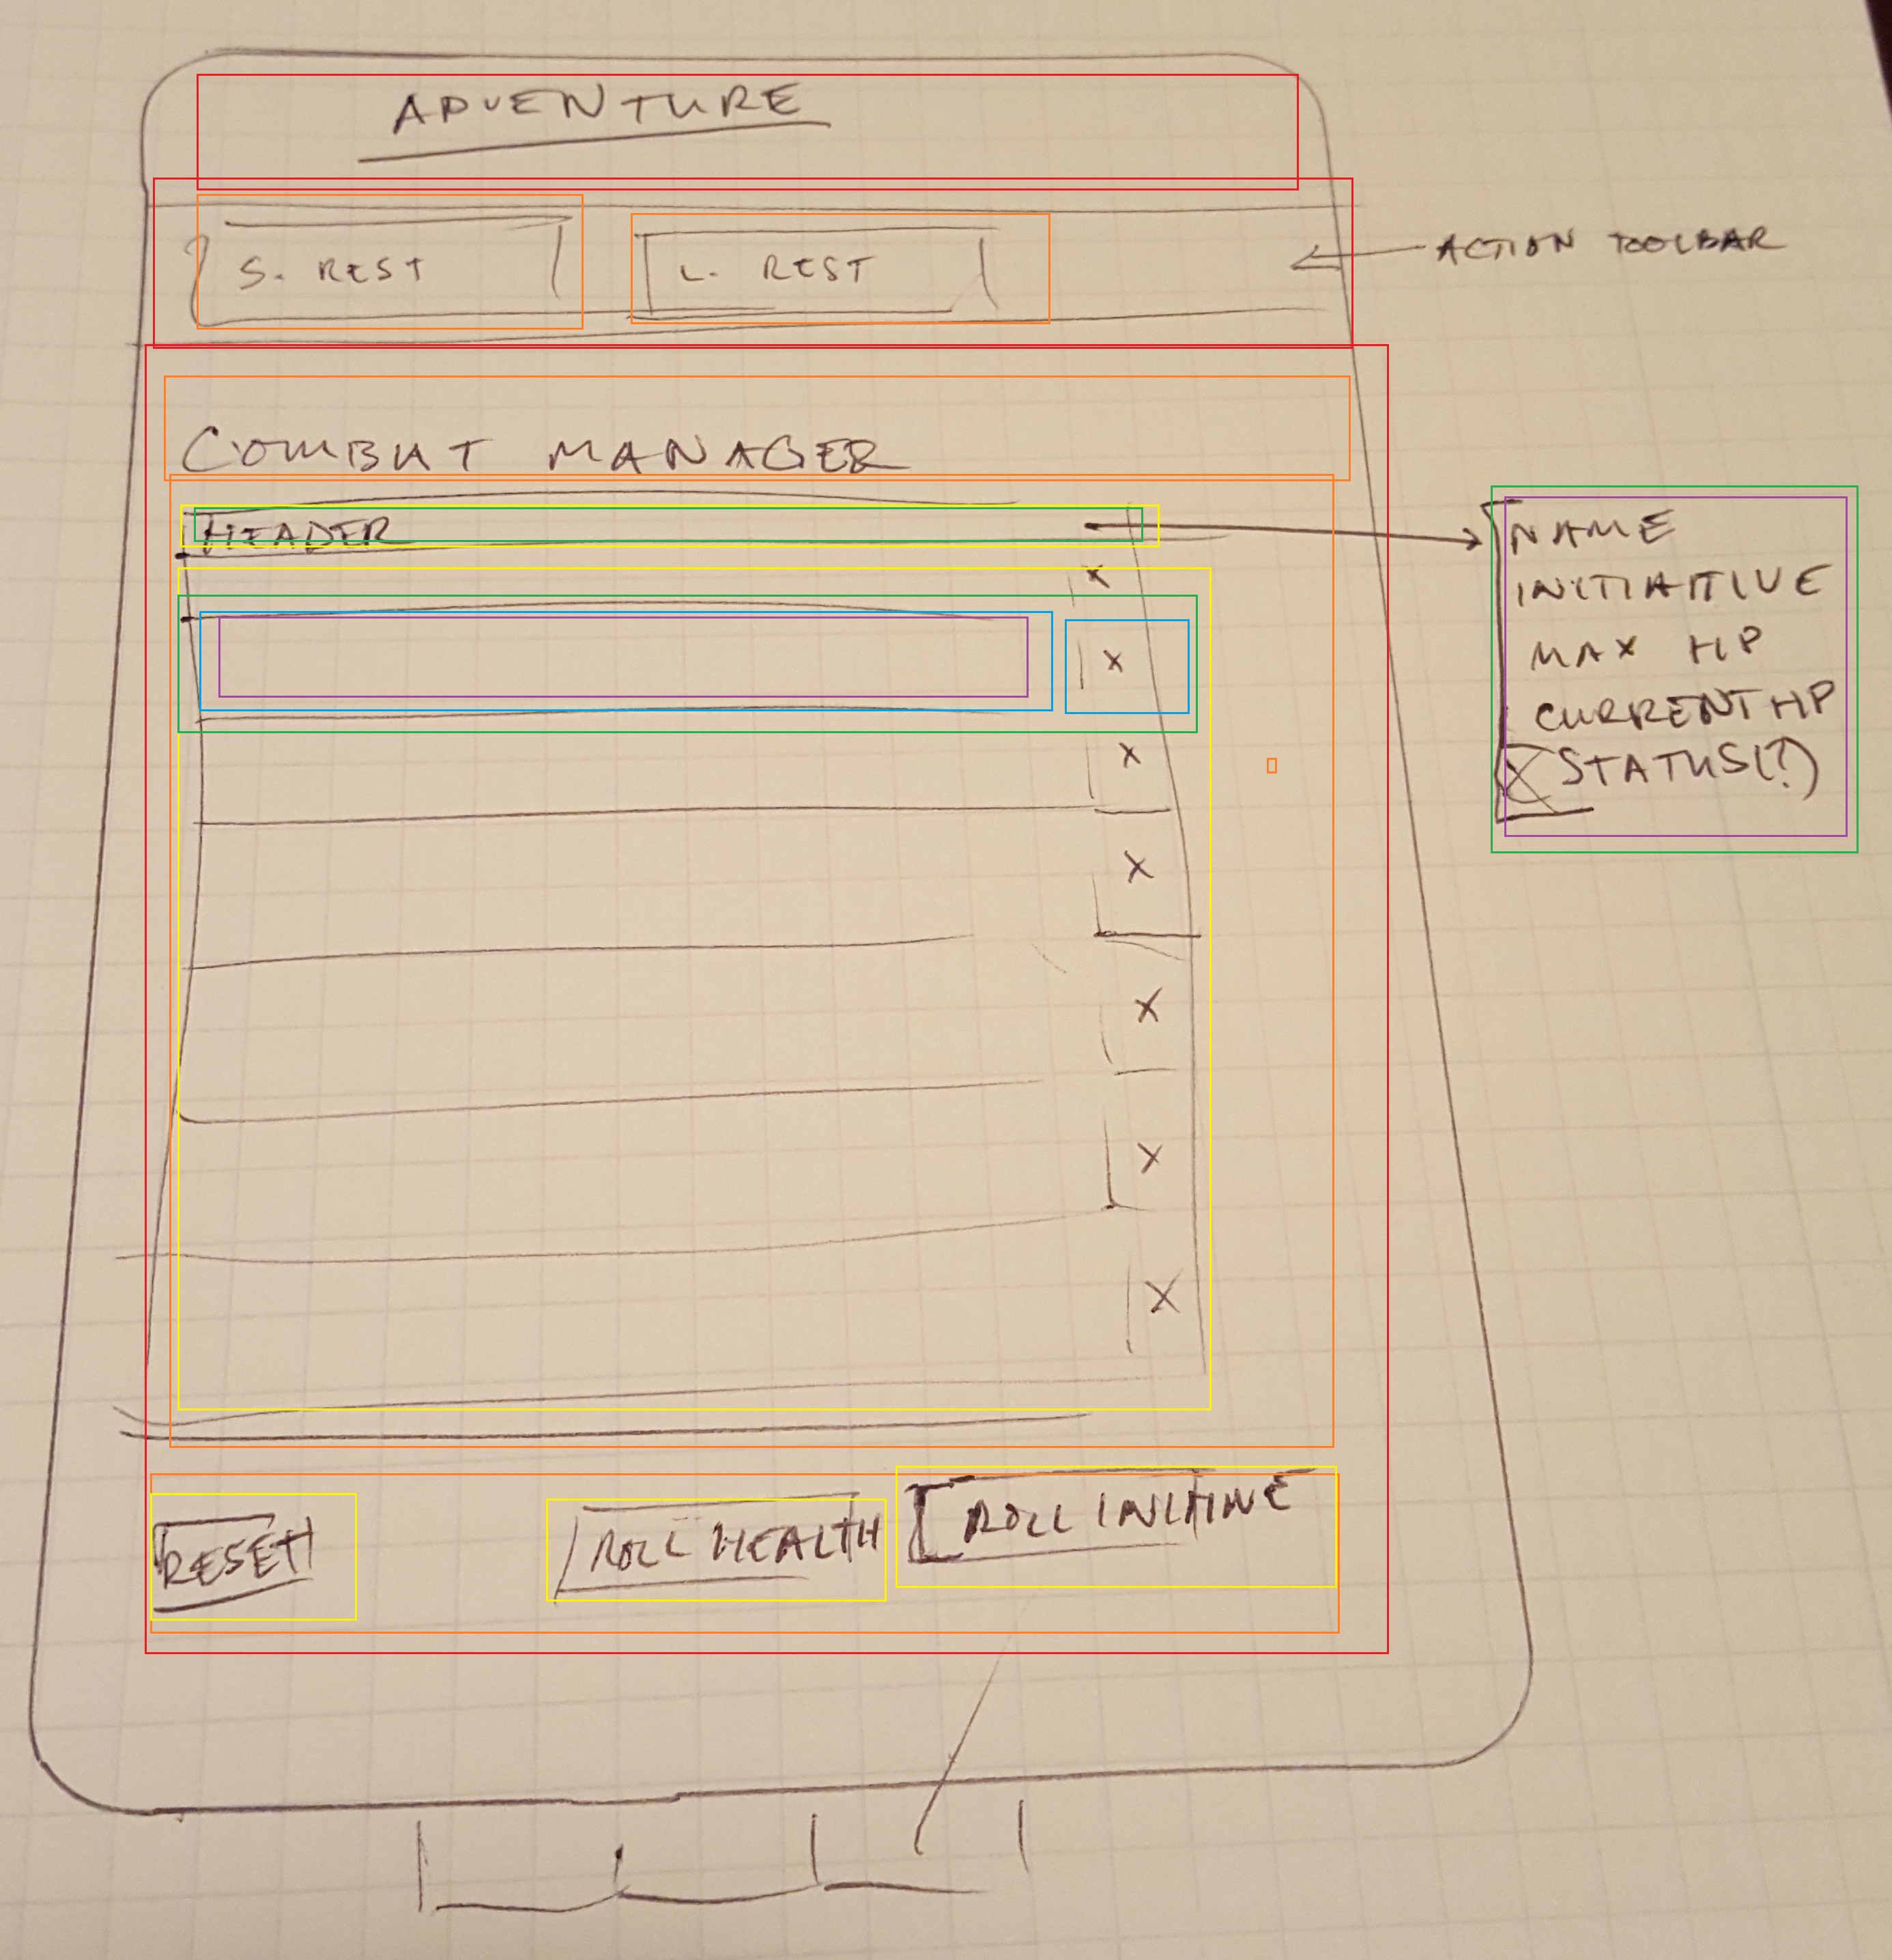 ADVENTURE
S. REST
L. REST
ACTION TOOLBAR
COMBAT MANAGER
HEADER
NAME
INITIATIVE
MAX HP
CURRENT HP
STATUS(?)
X
X
X
X
X
X
X
RESET
ROLL HEALTH
ROLL INITIATIVE